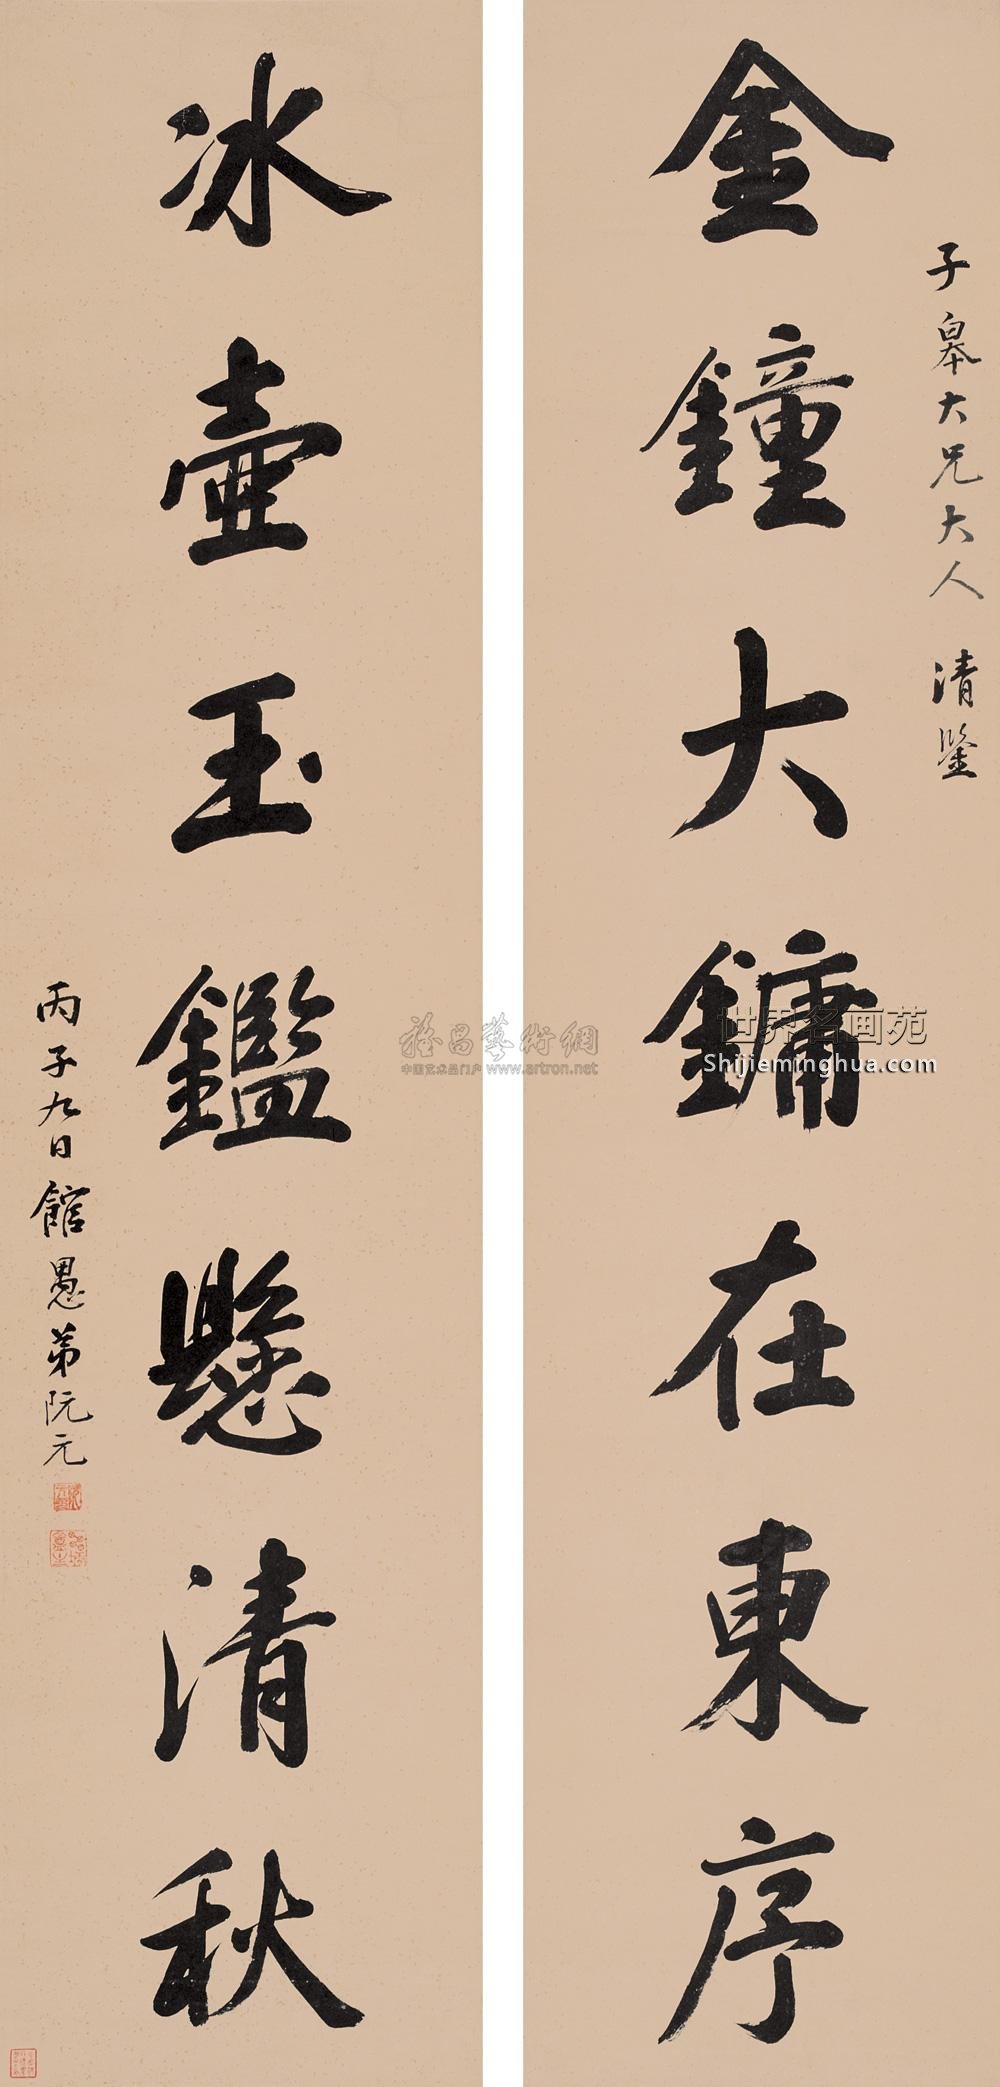 子皋大兄大人 清鑒
金鐘大鏞在東序
冰壺玉鑑懸清秋
丙子九日館愚弟阮元
世界名画苑
Shijieminghua.com
中国艺术品门户 www.artron.net